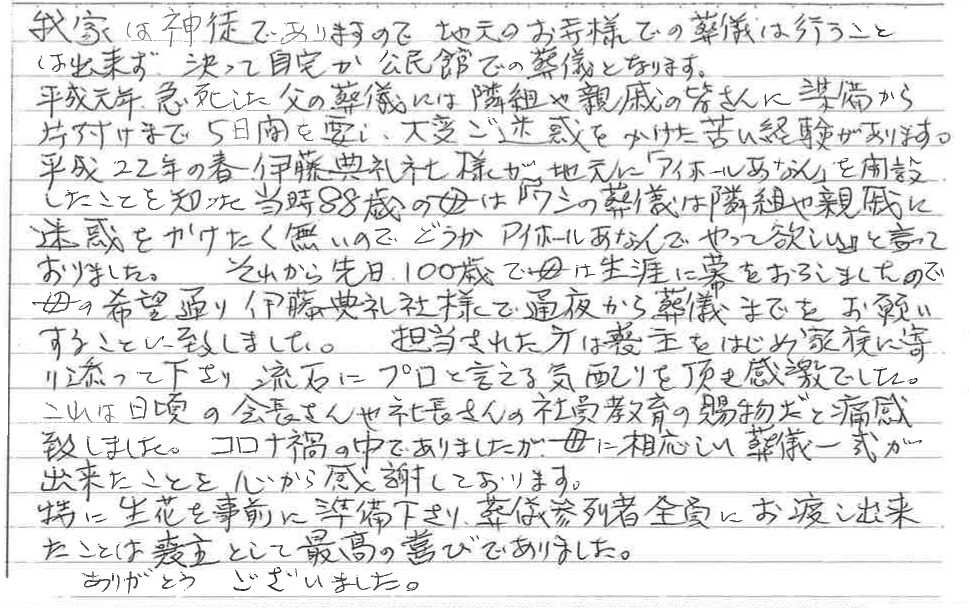 我家は神徒でありますので 地元のお寺様での葬儀は行うこと
は出来ず 決って自宅か公民館での葬儀となります。
平成元年、急死した父の葬儀には隣組や親戚の皆さんに準備から
片付けまで5日間を要し、大変ご迷惑をかけた苦い経験があります。
平成22年の春 伊藤典礼社様が、地元に「アイホールあなん」を開設
したことを知った当時88歳の母は『ワシの葬儀は隣組や親戚に
迷惑をかけたく無いので どうか アイホールあなんで やって欲しい』と言って
おりました。 それから先日、100歳で母は生涯に幕をおろしましたので
母の希望通り伊藤典礼社様で通夜から葬儀までを お願い
することに致しました。 担当された方は喪主をはじめ家族に寄
り添って下さり 流石に プロと言える気配りを頂き感激でした。
これは日頃の会長さんや社長さんの社員教育の賜物だと痛感
致しました。 コロナ禍の中でありましたが 母に相応しい葬儀一式が
出来たことを 心から感謝しております。
特に生花を事前に準備下さり、葬儀参列者全員にお渡し出来
たことは喪主として最高の喜びでありました。
ありがとう ございました。